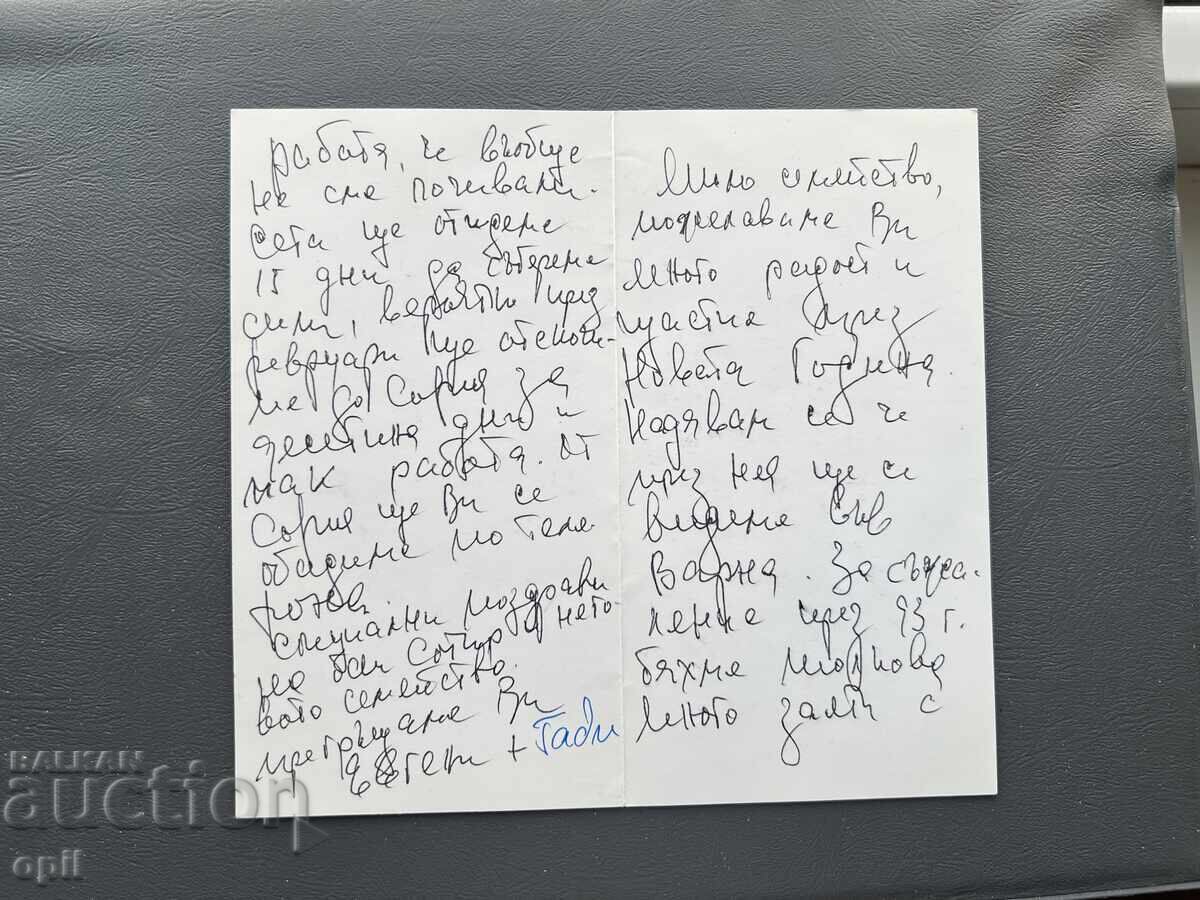 Мило семейство,
пожелаваме Ви
много радост и
щастие през
Новата Година.
Надявам се че
през нея ще се
видеме във
Варна. За съжа-
ление през 93 г.
бяхме толкова
много заети с
работя, че въобще
не сме почивали.
Сега ще отидеме
15 дни да съберем
сили, вероятно през
февруари ще отскочи-
ме до София за
десетина дни и
пак работа. От
София ще Ви се
обадиме по теле-
фона.
Специални поздрави
на бай Сотир и него-
вото семейство.
прегръщаме Ви
Евгени + Габи
BALKAN
auction
opll